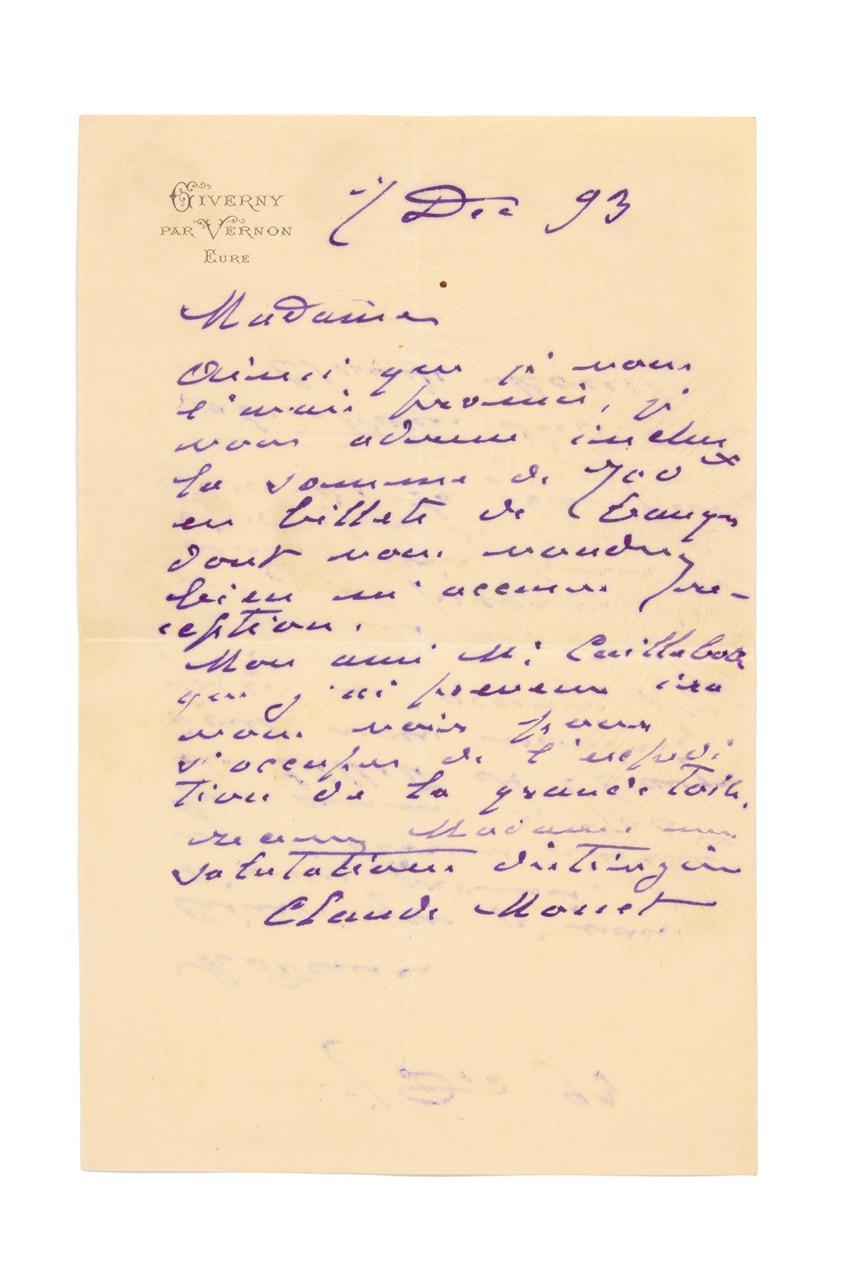 GIVERNY
PAR VERNON
EURE
Dec 93
Madame
Ainsi que je vous
l'avais promis, je
vous adresse inclus
la somme de 700
en billets de banque
dont vous voudrez
bien m'accuser ré-
ception.
Mon ami M. Caillebotte
que j'ai prévenu ira
vous voir pour
s'occuper de l'expédi
tion de la grande toile.
recevez Madame mes
salutations distinguées
Claude Monet